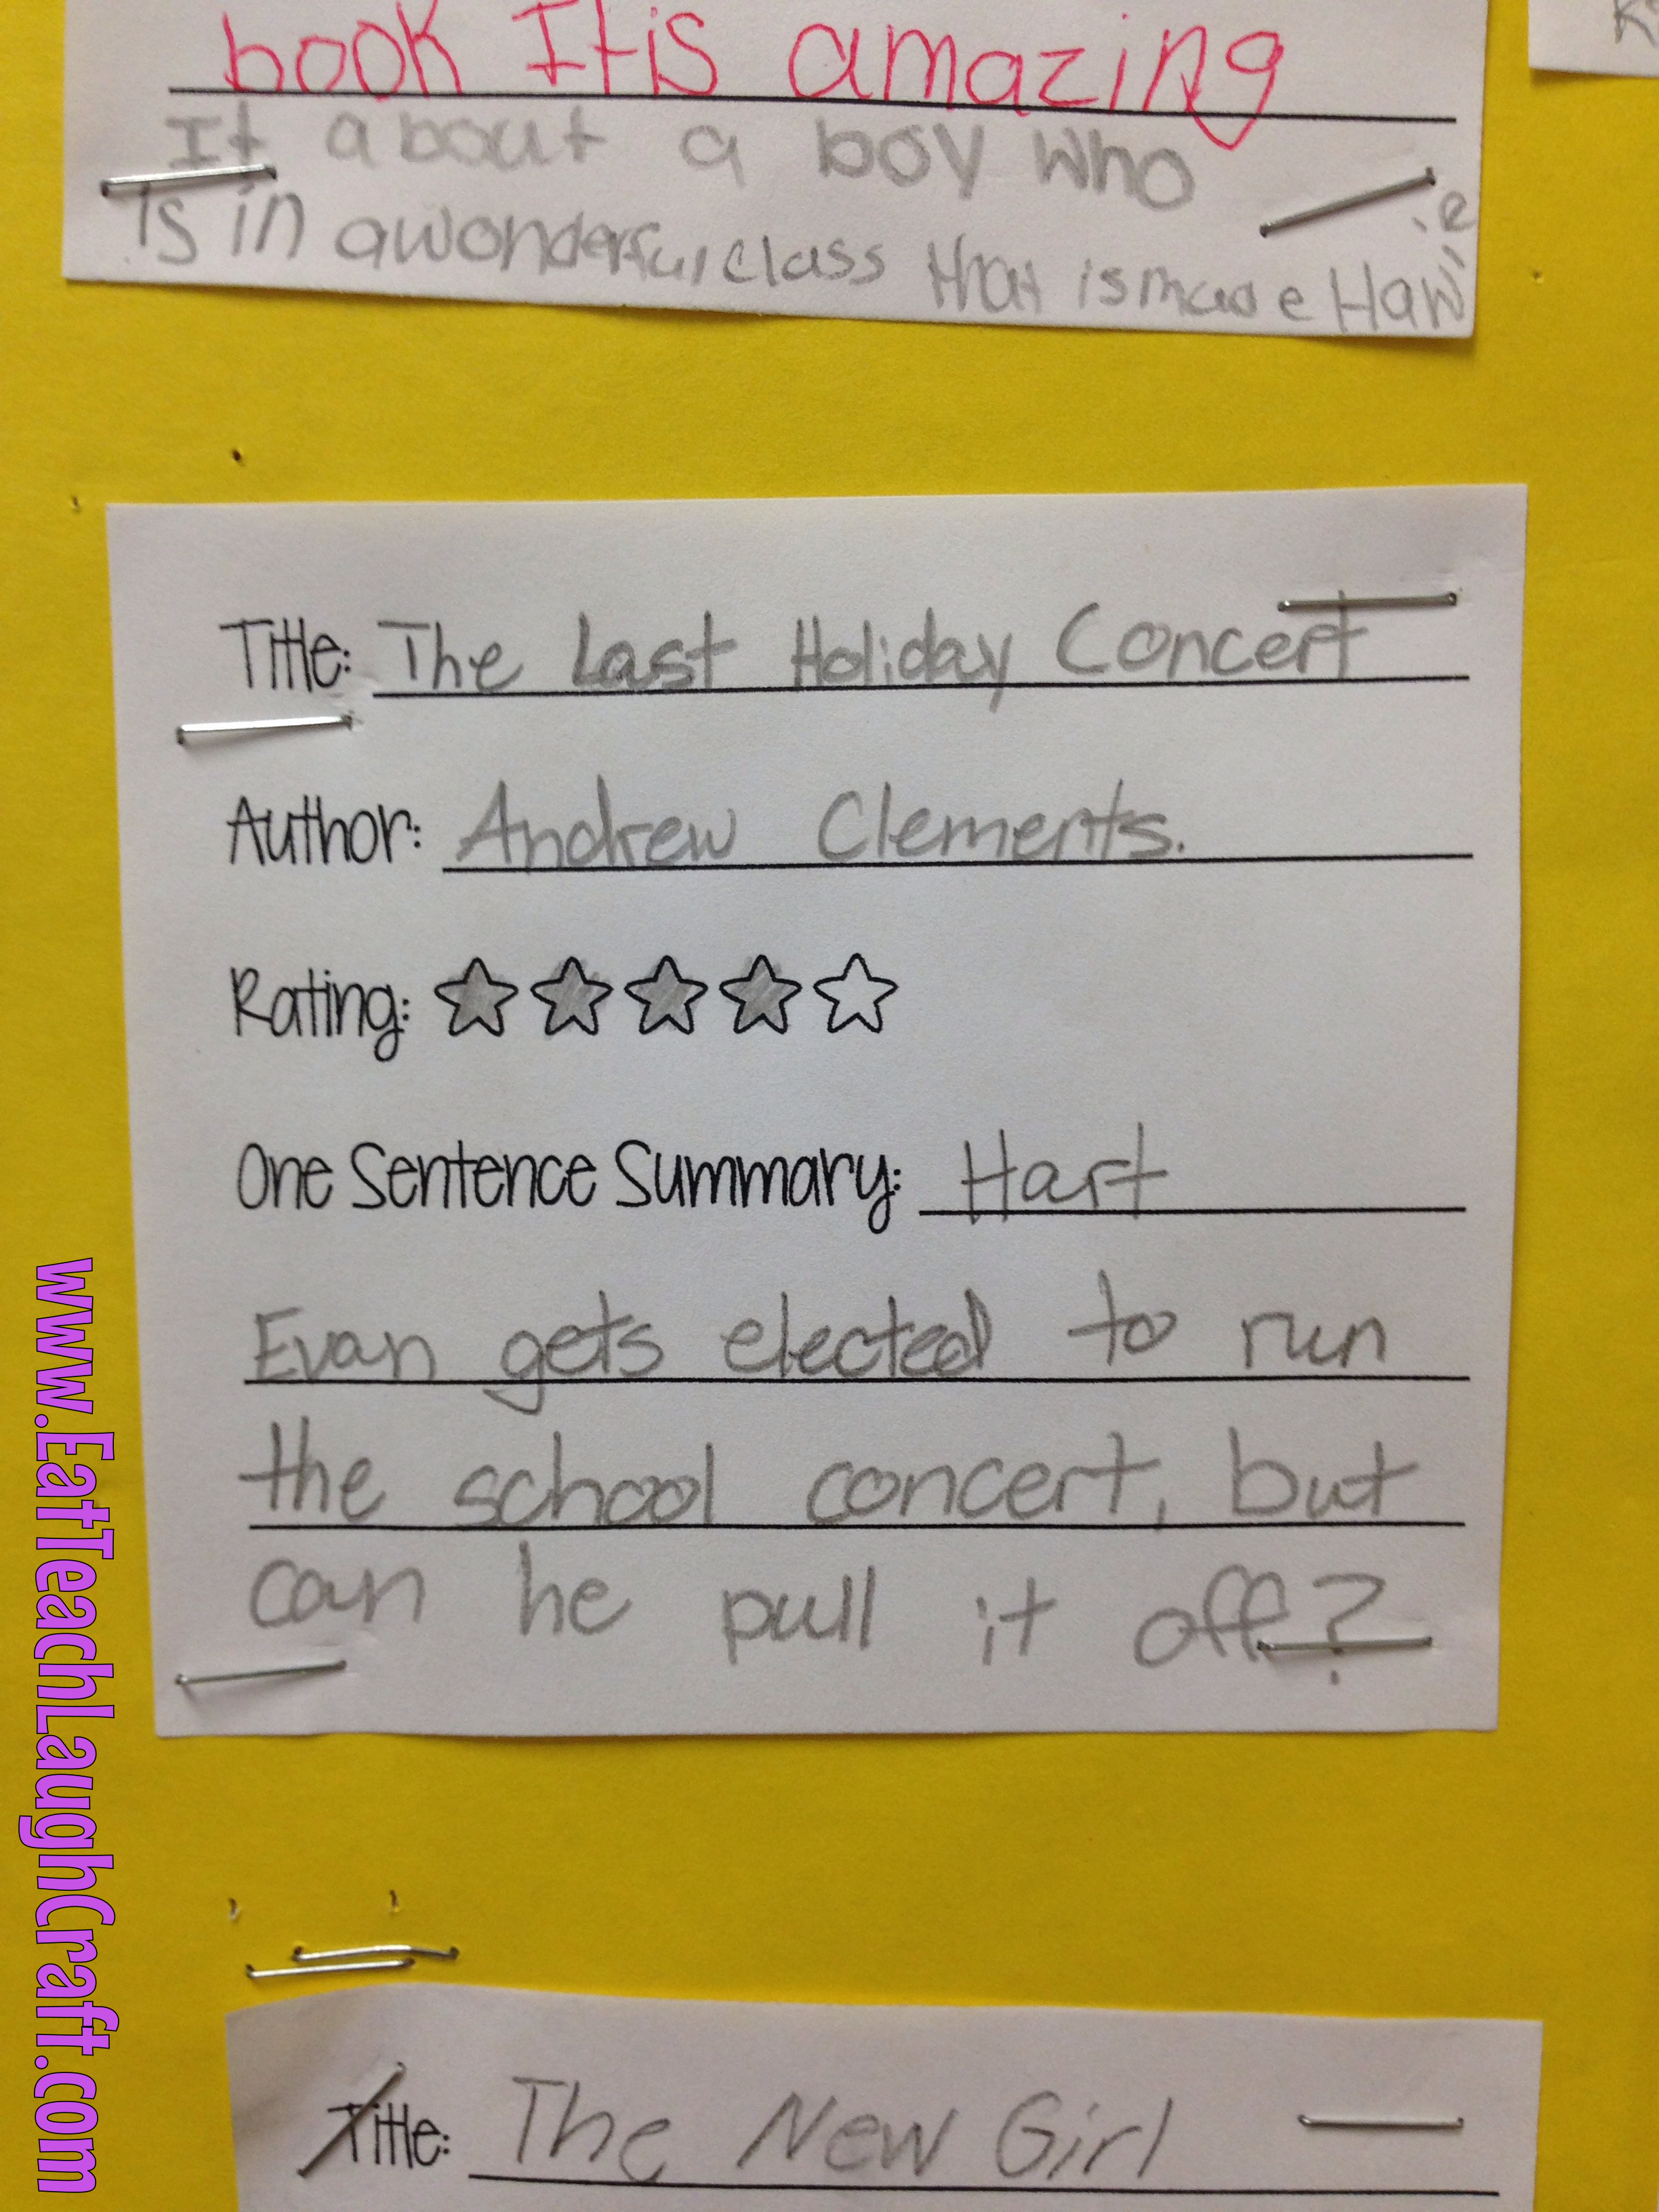 book It is amazing
It about a boy who
is in a wonderful class that is made Haw
Title: The Last Holiday Concert
Author: Andrew Clements.
Rating:
One Sentence Summary: Hart
Evan gets elected to run
the school concert, but
can he pull it off?
Title: The New Girl
www.EatTeachLaughCraft.com